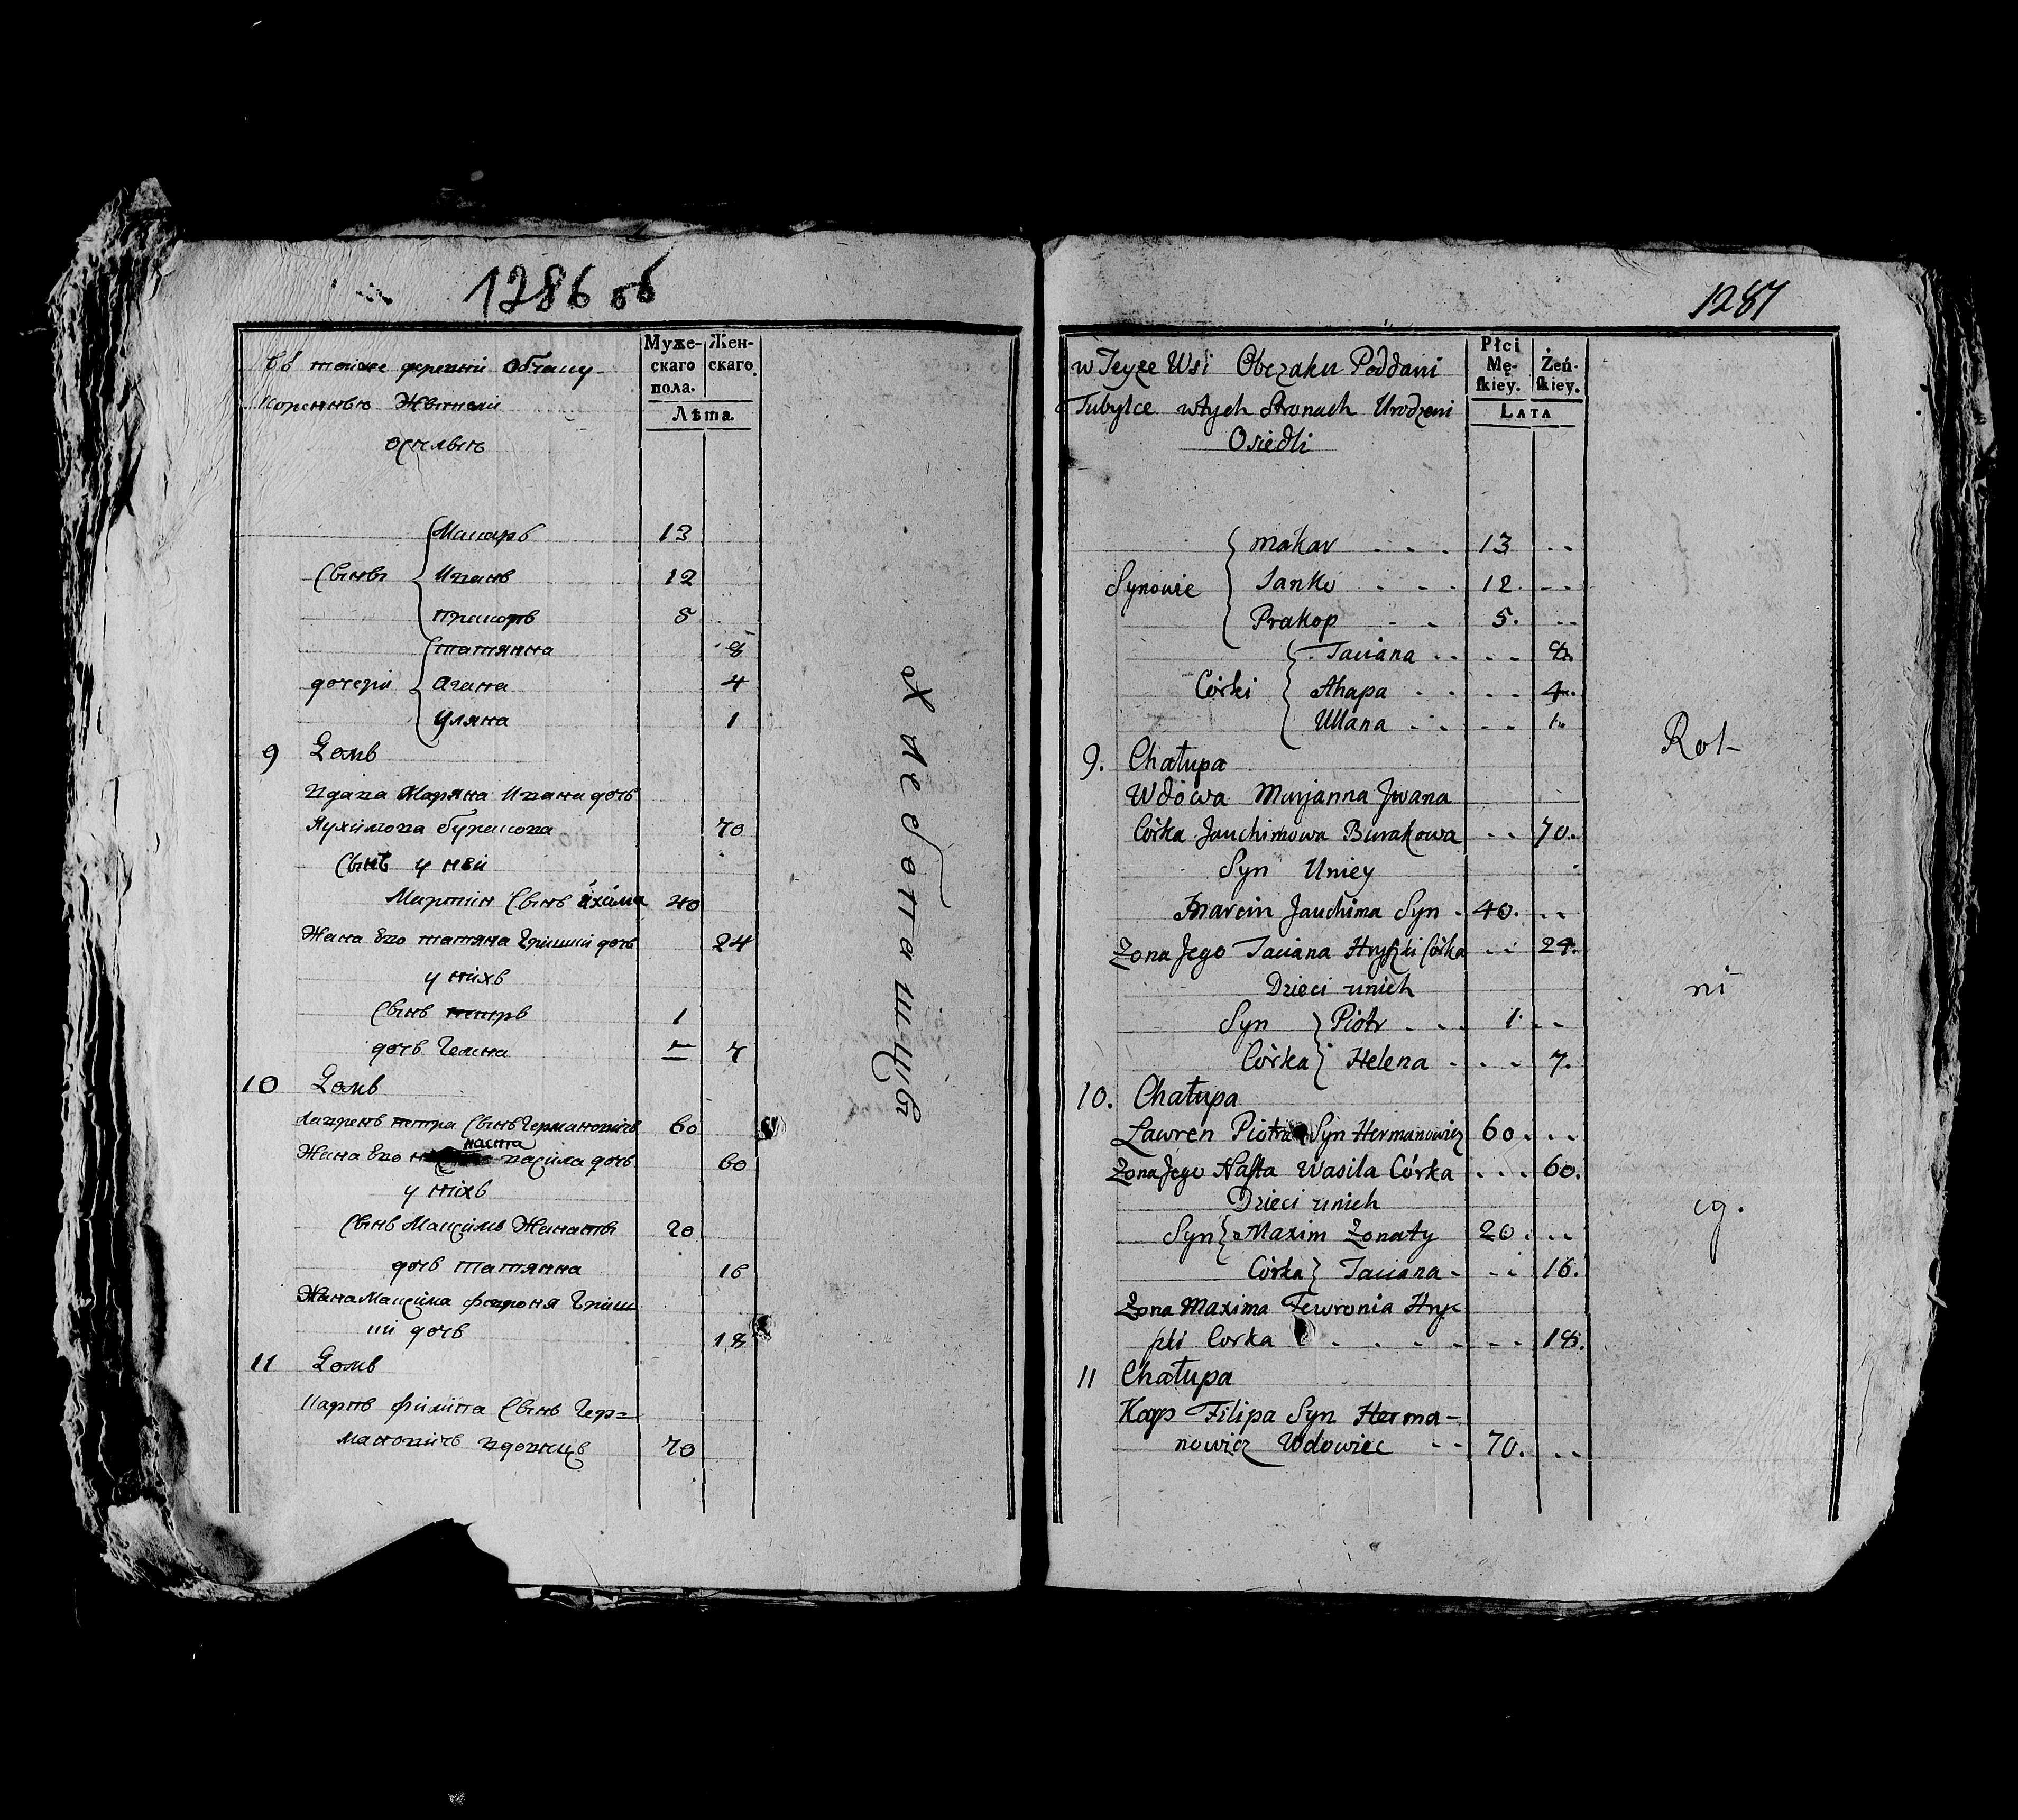 1286 об
Муже-
скаго
пола.
Жен-
скаго
Лѣта.
въ тойже деревни Обчаку
коренныю Жвители
оселыя
Сыны
Макаръ 13
Иванъ 12
Пракопъ 5
дочери
татянна 8
Агапа 4
Уляна 1
9 Домъ
Вдава Маряна Ивана дочь
Яухимова Буракова 70
Сынъ у ней
Мартин Сынъ Яхима 40
Жена Его татяна Гришки дочь 24
у нихъ
Сынъ петръ 1
дочь Гелена 7
10 Домъ
Лавренъ петра Сынъ Германовичъ 60
Жена Его наста васила дочь 60
у нихъ
Сынъ Максимъ Женаты 20
дочь татянна 16
Жена Максима февроня Гриш
ки дочь 18
11 Домъ
Карпъ филипа Сынъ Гер=
мановичъ вдовецъ 70
Хлебопашцъ
1287
Płci
Mę-
ſkiey.
Żeń-
ſkiey.
LATA
w Teyże Wsi Obczaku Poddani
Tubylce w tych Stronach Urodzeni
Osiedli
Synowie
Makar . . . 13 . .
Janko . . . 12. . .
Prakop . . 5. . .
Córki
Taciana . . . . 8.
Ahapa . . . . 4.
Ullana . . . . 1.
9. Chałupa
Wdowa Maryanna Jwana
Córka Jauchimowa Burakowa . . 70.
Syn Uniey
Marcin Jauchima Syn . 40. . .
Żona Jego Taciana Hryszki Córka . . 24.
Dzieci unich
Syn } Piotr . . . 1. . .
Córka } Helena . . . . 7.
10. Chałupa
Lawren Piotra Syn Hermanowicz 60 . . .
Żona Jego Naſta Wasila Córka . . . 60.
Dzieci unich
Syn { Maxim Żonaty 20 . . .
Córka } Taciana . . . 16.
Żona Maxima Fewronia Hry
szki Corka . . . . . . 18.
11 Chałupa
Karp Filipa Syn Herma-
nowicz Wdowiec . . 70. . .
Rol-
ni
cy.